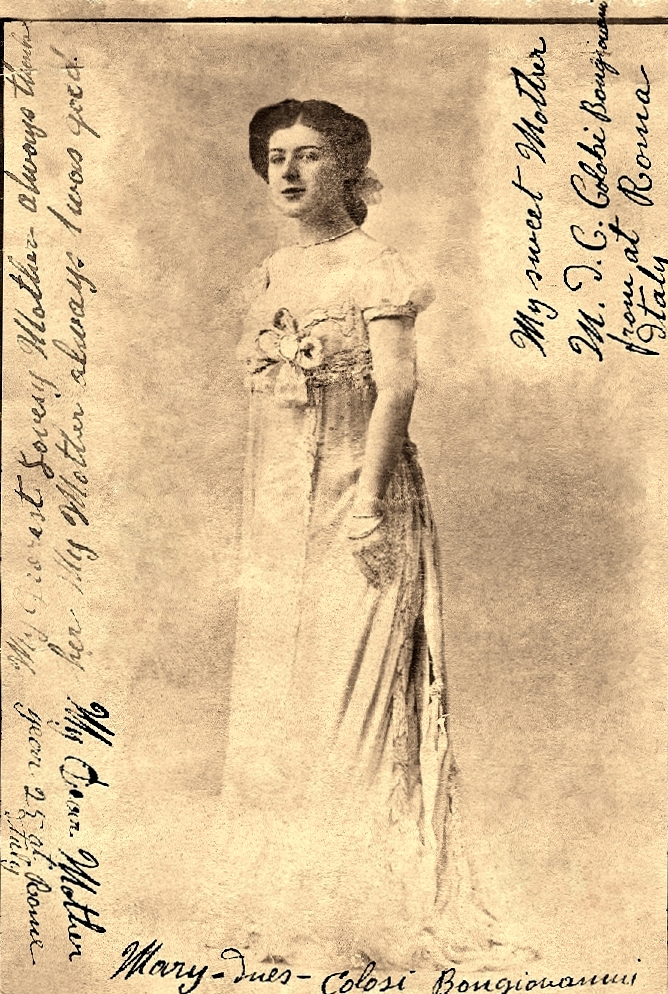 My sweet Mother
M. D. C. Colosi Bongiovanni
from at Roma
Italy
My Dearest Lovely Mother always think
her My Mother always I was good.
My Dear Mother
year 25 at Rome
Italy
Mary-Ines- Colosi Bongiovanni